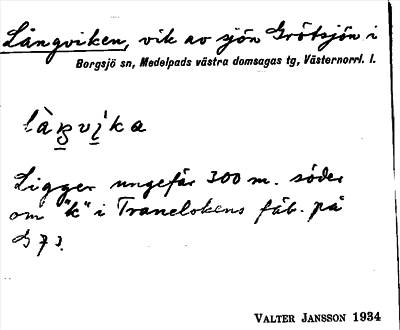 Långviken, vik av sjön Grötsjön i
Borgsjö sn, Medelpads västra domsagas tg, Västernorrl. l.
Ligger ungefär 300 m. söder
om "k" i Tranelokens fäb. på
VALTER JANSSON 1934